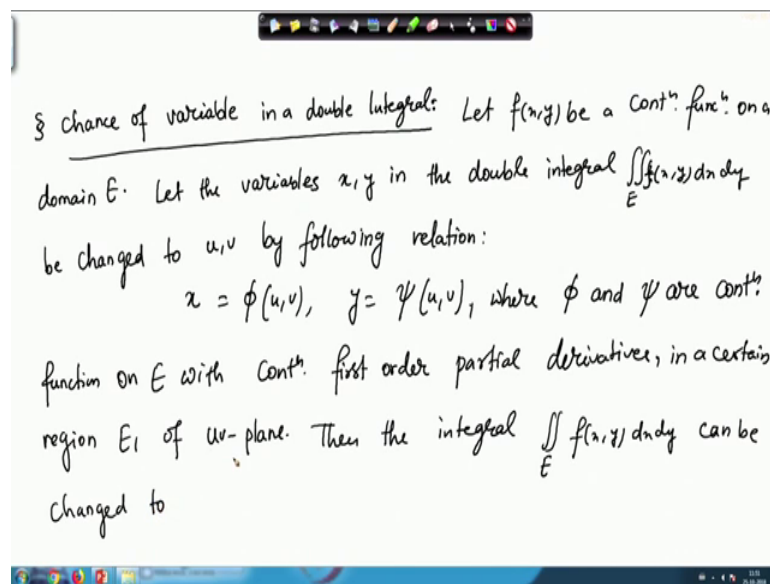 § Chance of variable in a double Integral: Let f(x,y) be a contⁿ. funcⁿ. on a
domain E. Let the variables x, y in the double integral ∬_E f(x,y) dx dy
be changed to u,v by following relation:
x = ϕ(u,v), y = ψ(u,v), where ϕ and ψ are contⁿ.
function on E with contⁿ. first order partial derivatives, in a certain
region E₁ of uv-plane. Then the integral ∬_E f(x,y) dx dy can be
changed to